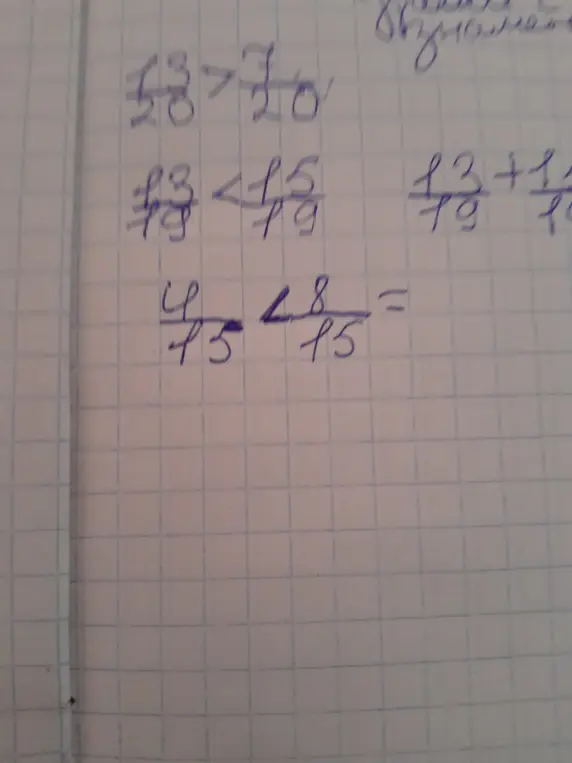 13/20 > 7/20
13/19 < 15/19 13/19 +
4/15 < 8/15 =